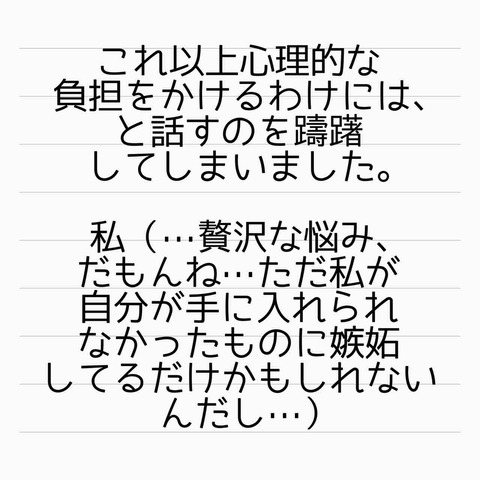 これ以上心理的な
負担をかけるわけには、
と話すのを躊躇
してしまいました。
私（…贅沢な悩み、
だもんね…ただ私が
自分が手に入れられ
なかったものに嫉妬
してるだけかもしれない
んだし…）